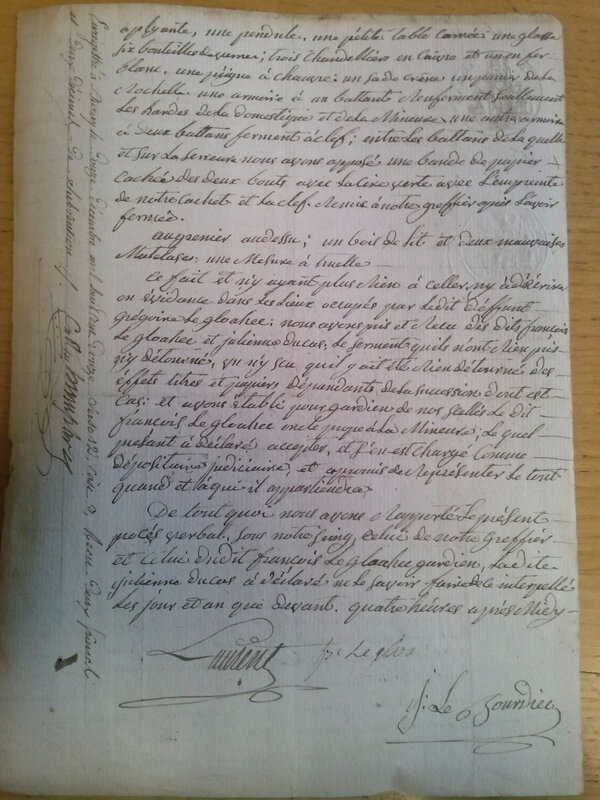 aployante, une pendule, une petite table carrée une glasse
six bouteilles de verre; trois chandelliers en cuivre et un en fer
blanc, une peigne à chanvre: un sac de crëne un panier de la
Rochelle. une armoire à un battante Renferment seullement
les hardes de la domestique et de la Mineure, une autre armoire
à deux battans ferment à clef; entre les battans de la quelle
et sur la serrure nous avons apposé une bande de papier
cachée des deux bouts avec la cire verte avec l'empreinte
de notre cachet et la clef Remise à notre greffier après l'avoir
fermée.
au grenier au dessu; un bois de lit et deux mauvaises
Matelases: une Mesure à truelle
Ce fait et n'y ayant plus Rien à celler, ny à décrire
en évidence dans les lieux occupés par le dit deffunt
grégoire Le gloahec: nous avons pris et Reçu des dits françois
Le gloahec et julienne ducas, le serment qu'ils n'ont Rien pris
n'y détourné, vu n'y scu, qu'il y ait été Rien détourné des
éffets titres et papiers dépendants de la succession dont est
cas; et avons établi pour gardien de nos scellés Le dit
françois Le gloahec oncle propre à la Mineure; Le quel
présent à déclaré accepter, et s'en est chargé comme
dépositaire judiciaire, et a promis de Représenter le tout
quand et à qui il appartiendra
De tout quoi nous avons Rapporté le présent
procés verbal, sous notre seing, celui de notre Greffier
et celui du dit françois Le gloahec gardien, La dite
julienne ducas à déclaré ne le savoir faire de ce interpellé
Les jour et an que devant. quatre heures après Midy
Laurent
fs Le glo
j: Le Gourdiec
Enregistré à le douze Décembre mil huit cent douze folio 52 case 9, Reçu deux francs
et vingt Décimes de subvention